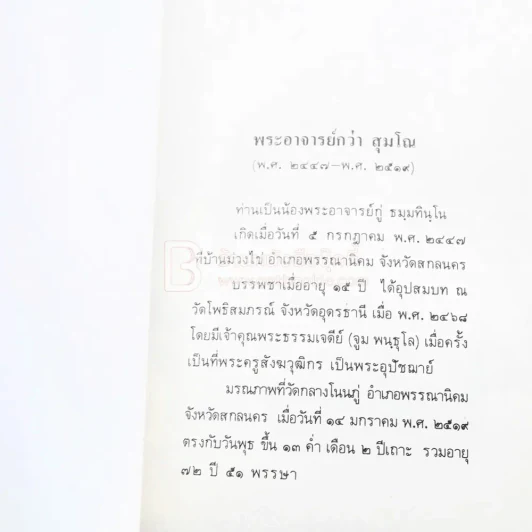 พระอาจารย์กว่า สุมโณ
(พ.ศ. ๒๔๔๗-พ.ศ. ๒๕๑๙)
ท่านเป็นน้องพระอาจารย์กู่ ธมฺมทินฺโน
เกิดเมื่อวันที่ ๕ กรกฎาคม พ.ศ. ๒๔๔๗
ที่บ้านม่วงไข่ อำเภอพรรณานิคม จังหวัดสกลนคร
บรรพชาเมื่ออายุ ๑๕ ปี ได้อุปสมบท ณ
วัดโพธิสมภรณ์ จังหวัดอุดรธานี เมื่อ พ.ศ. ๒๔๖๘
โดยมีเจ้าคุณพระธรรมเจดีย์ (จูม พนฺธุโล) เมื่อครั้ง
เป็นที่พระครูสังฆวุฒิกร เป็นพระอุปัชฌาย์
มรณภาพที่วัดกลางโนนภู่ อำเภอพรรณานิคม
จังหวัดสกลนคร เมื่อวันที่ ๑๔ มกราคม พ.ศ. ๒๕๑๙
ตรงกับวันพุธ ขึ้น ๑๓ ค่ำ เดือน ๒ ปีเถาะ รวมอายุ
๗๒ ปี ๕๑ พรรษา